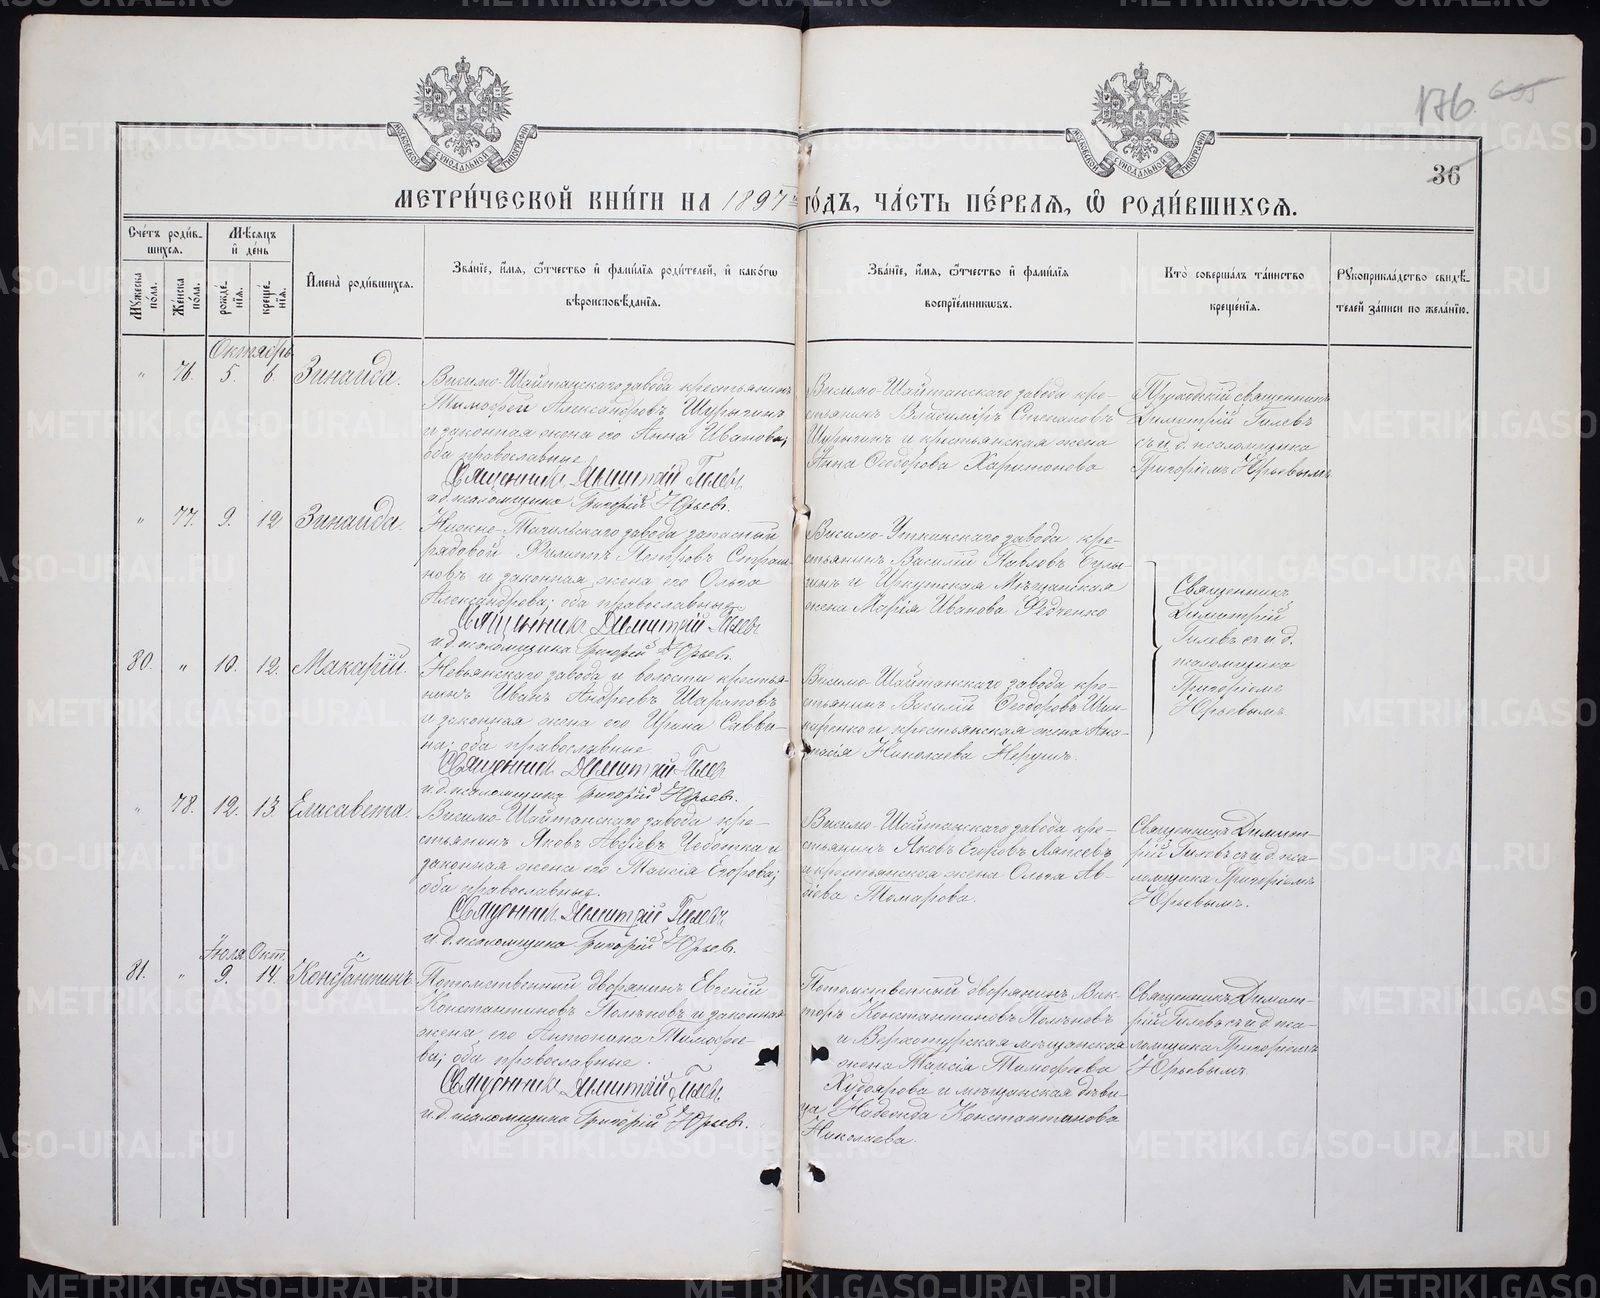 176.
36
МЕТРИ́ЧЕСКОЙ КНИ́ГИ НА 1897 ГО́ДЪ, ЧА́СТЬ ПЕ́РВАЯ, Ѿ РОДИ́ВШИХСЯ.
Сче́тъ роди́в-
шихся.
Мѣсяцъ
и де́нь
Му́жеска
по́ла.
Же́нска
по́ла.
рожде́-
нія.
креще́-
нія.
И҆мена̀ роди́вшихся.
Зва́ніе, и҆́мя, ѻ҆́тчество и҆ фами́лія роди́телей, и҆ како́гѡ
вѣроисповѣ́данія.
Зва́ніе, и҆́мя, ѻ҆́тчество и҆ фами́лія
воспріе́мниковъ.
Кто̀ соверша́лъ та́инство
креще́нія.
Рукоприкла́дство свидѣ́-
телей за́писи по жела́нію.
Октябрь
" 76. 5. 6. Зинаида.
Висимо-Шайтанскаго завода крестьянинъ
Тимофей Александровъ Шурыгинъ
и законная жена его Анна Иванова;
оба православные
Священникъ Димитрій Гилевъ
и.д. псаломщика Григорій Юрьевъ.
Висимо-Шайтанскаго завода кре-
стьянинъ Владиміръ Степановъ
Шурыгинъ и крестьянская жена
Анна Ѳеодорова Харитонова
Приходскій священникъ
Димитрій Гилевъ
съ и.д. псаломщика
Григоріемъ Юрьевымъ
" 77. 9. 12 Зинаида.
Нижне-Тагильскаго завода запасный
рядовой Филиппъ Петровъ Страш-
новъ и законная жена его Ольга
Александрова; оба православные
Священникъ Димитрій Гилевъ
и.д. псаломщика Григорій Юрьевъ.
Висимо-Уткинскаго завода кре-
стьянинъ Василій Павловъ Булы-
гинъ и Иркутская Мѣщанская
жена Марія Иванова Федченко
Священникъ
Димитрій
Гилевъ съ и.д.
псаломщика
Григоріемъ
Юрьевымъ
80. " 10. 12. Макарій.
Невьянскаго завода и волости крестья-
нинъ Иванъ Андреевъ Шараповъ
и законная жена его Ирина Савви-
на; оба православные
Священникъ Димитрій Гилевъ
и.д. псаломщика Григорій Юрьевъ.
Висимо-Шайтанскаго завода кре-
стьянинъ Василій Ѳеодоровъ
и крестьянская жена Ана-
стасія Николаева
" 78. 12. 13. Елисавета.
Висимо-Шайтанскаго завода кре-
стьянинъ Яковъ Авдіевъ Чеботка и
законная жена его Таисія Егорова;
оба православные.
Священникъ Димитрій Гилевъ
и.д. псаломщика Григорій Юрьевъ.
Висимо-Шайтанскаго завода кре-
стьянинъ Яковъ Егоровъ Ляшевъ
и крестьянская жена Ольга Ав-
діева Томарова.
Священникъ Димит-
рій Гилевъ съ и.д. пса-
ломщика Григоріемъ
Юрьевымъ.
Іюля Окт.
81. " 9. 14. Константинъ.
Потомственный дворянинъ Евгеній
Константиновъ и законная
жена его Антонина Тимофее-
ва; оба православные.
Священникъ Димитрій Гилевъ
и.д. псаломщика Григорій Юрьевъ.
Потомственный дворянинъ Вик-
торъ Константиновъ
и Верхотурская мѣщанская
жена Таисія Тимофеева
Худоярова и мѣщанская дѣви-
ца Надежда Константинова
Николаева.
Священникъ Димит-
рій Гилевъ съ и.д. пса-
ломщика Григоріемъ
Юрьевымъ
METRIKI.GASO-URAL.RU